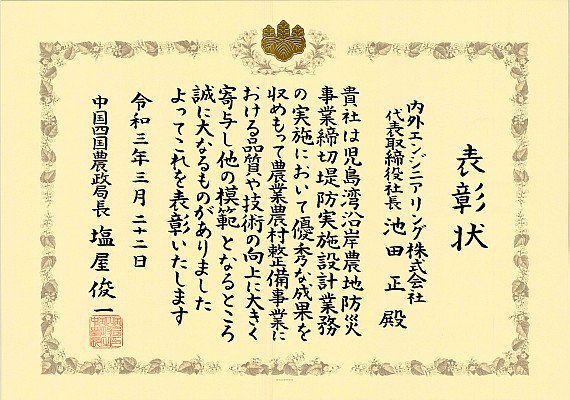 表彰状
内外エンジニアリング株式会社
代表取締役社長 池田正 殿
貴社は児島湾沿岸農地防災
事業締切堤防実施設計業務
の実施において優秀な成果を
収めもって農業農村整備事業に
おける品質や技術の向上に大きく
寄与し他の模範となるところ
誠に大なるものがありました
よってこれを表彰いたします
令和三年三月二十二日
中国四国農政局長 塩屋俊一